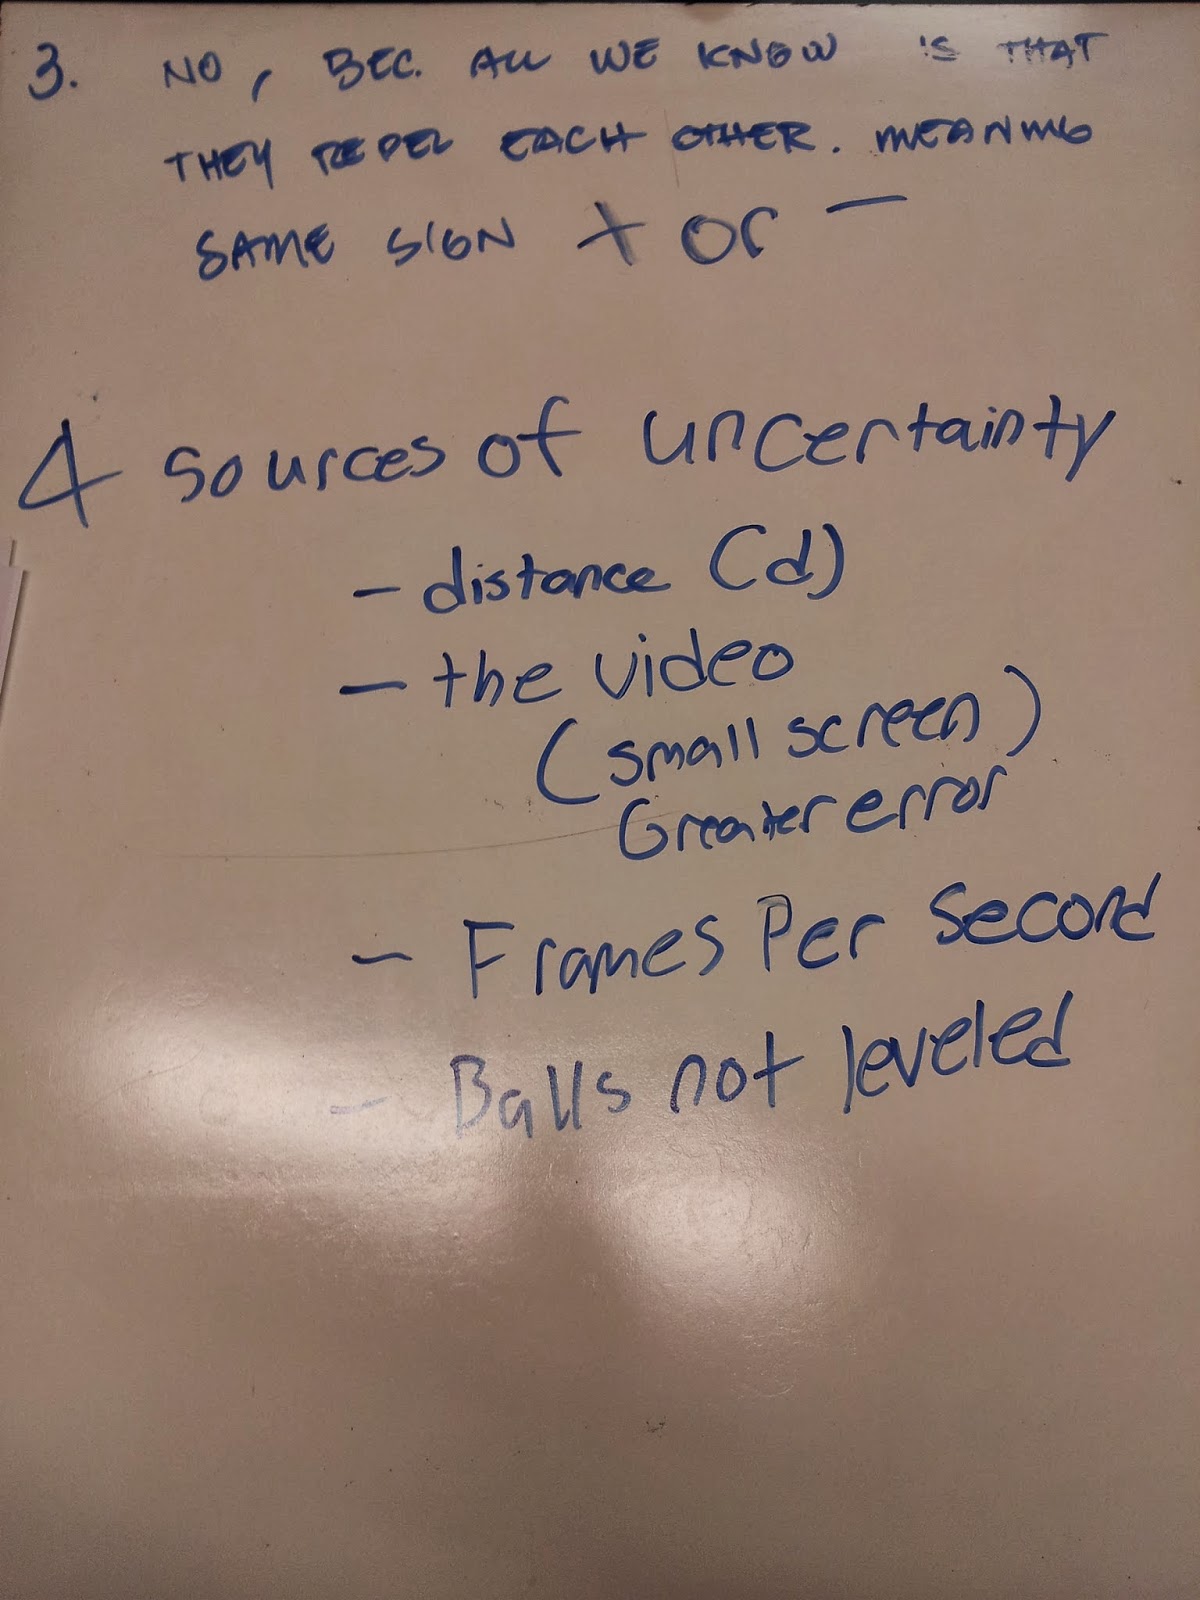 3. NO, BEC. ALL WE KNOW IS THAT
THEY REPEL EACH OTHER. MEANING
SAME SIGN + or −
4 Sources of uncertainty
- distance (d)
- the video
(small screen)
Greater error
- Frames Per Second
- Balls not leveled